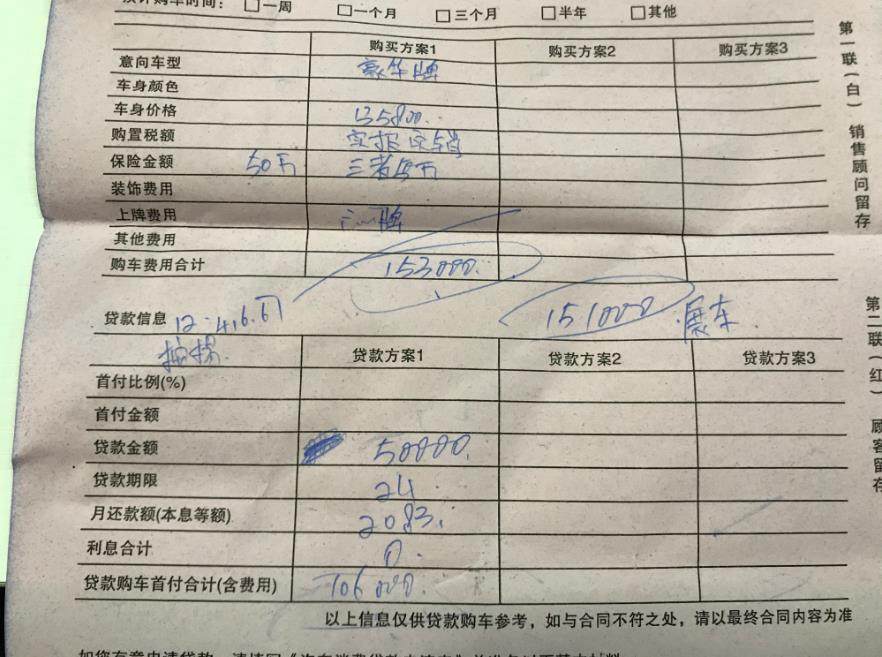 预计购车时间：□一周 □一个月 □三个月 □半年 □其他
购买方案1 购买方案2 购买方案3
意向车型 豪华牌
车身颜色
车身价格 135800.
购置税额 实报实销
保险金额 50万 三者
装饰费用
上牌费用 牌
其他费用
购车费用合计 153000.
贷款信息 151000 展车
贷款方案1 贷款方案2 贷款方案3
首付比例(%)
首付金额
贷款金额 50000.
贷款期限 24
月还款额(本息等额) 2083.
利息合计 0.
贷款购车首付合计(含费用) 106000.
以上信息仅供贷款购车参考，如与合同不符之处，请以最终合同内容为准
第一联（白） 销售顾问留存
第二联（红） 顾客留存